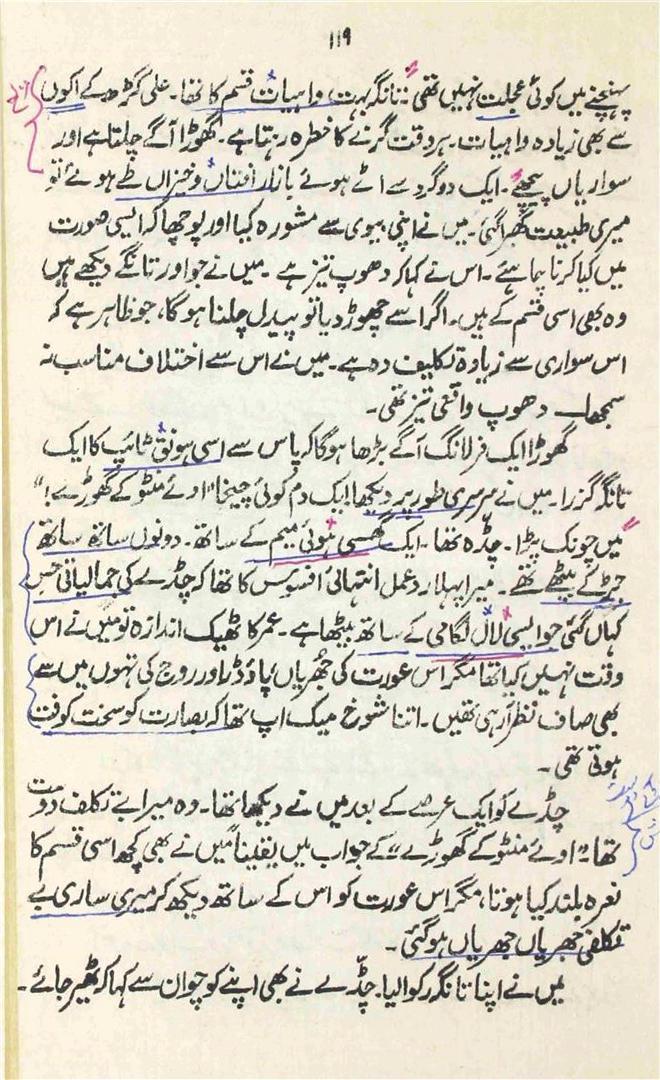 ۱۱۹
پہنچنے میں کوئی عجلت نہیں تھی۔ تانگہ بہت واہیات قسم کا تھا۔ علی گڑھ کے اکوں
سے بھی زیادہ واہیات۔ ہر وقت گرنے کا خطرہ رہتا ہے۔ گھوڑا آگے چلتا ہے اور
سواریاں پیچھے۔ ایک دو گرد سے اٹے ہوئے بازار افتاں و خیزاں طے ہوئے تو
میری طبیعت گھبرا گئی۔ میں نے اپنی بیوی سے مشورہ کیا اور پوچھا کہ ایسی صورت
میں کیا کرنا چاہئے۔ اس نے کہا کہ دھوپ تیز ہے۔ میں نے جو اور تانگے دیکھے ہیں
وہ بھی اسی قسم کے ہیں۔ اگر اسے چھوڑ دیا تو پیدل چلنا ہوگا، جو ظاہر ہے کہ
اس سواری سے زیادہ تکلیف دہ ہے۔ میں نے اس سے اختلاف مناسب نہ
سمجھا۔ دھوپ واقعی تیز تھی۔
گھوڑا ایک فرلانگ آگے بڑھا ہوگا کہ پاس سے اسی ہونق ٹائپ کا ایک
تانگہ گزرا۔ میں نے سرسری طور پر دیکھا۔ ایک دم کوئی چیخا "اوئے منٹو کے گھوڑے!"
میں چونک پڑا۔ چڈہ تھا۔ ایک گھسی ہوئی میم کے ساتھ۔ دونوں ساتھ ساتھ
جڑ کے بیٹھے تھے۔ میرا پہلا رد عمل انتہائی افسوس کا تھا کہ چڈے کی جمالیاتی حس
کہاں گئی جو ایسی لال لگامی کے ساتھ بیٹھا ہے۔ عمر کا ٹھیک اندازہ تو میں نے اس
وقت نہیں کیا تھا مگر اس عورت کی جھریاں پاؤڈر اور روج کی تہوں میں سے
بھی صاف نظر آ رہی تھیں۔ اتنا شوخ میک اپ تھا کہ بصارت کو سخت کوفت
ہوتی تھی۔
چڈے کو ایک عرصے کے بعد میں نے دیکھا تھا۔ وہ میرا بے تکلف دوست
تھا۔ "اوئے منٹو کے گھوڑے" کے جواب میں یقیناً میں نے بھی کچھ اسی قسم کا
نعرہ بلند کیا ہوتا، مگر اس عورت کو اس کے ساتھ دیکھ کر میری ساری بے
تکلفی جھریاں جھریاں ہو گئی۔
میں نے اپنا تانگہ رکوا لیا۔ چڈے نے بھی اپنے کوچوان سے کہا کہ ٹھہر جائے۔